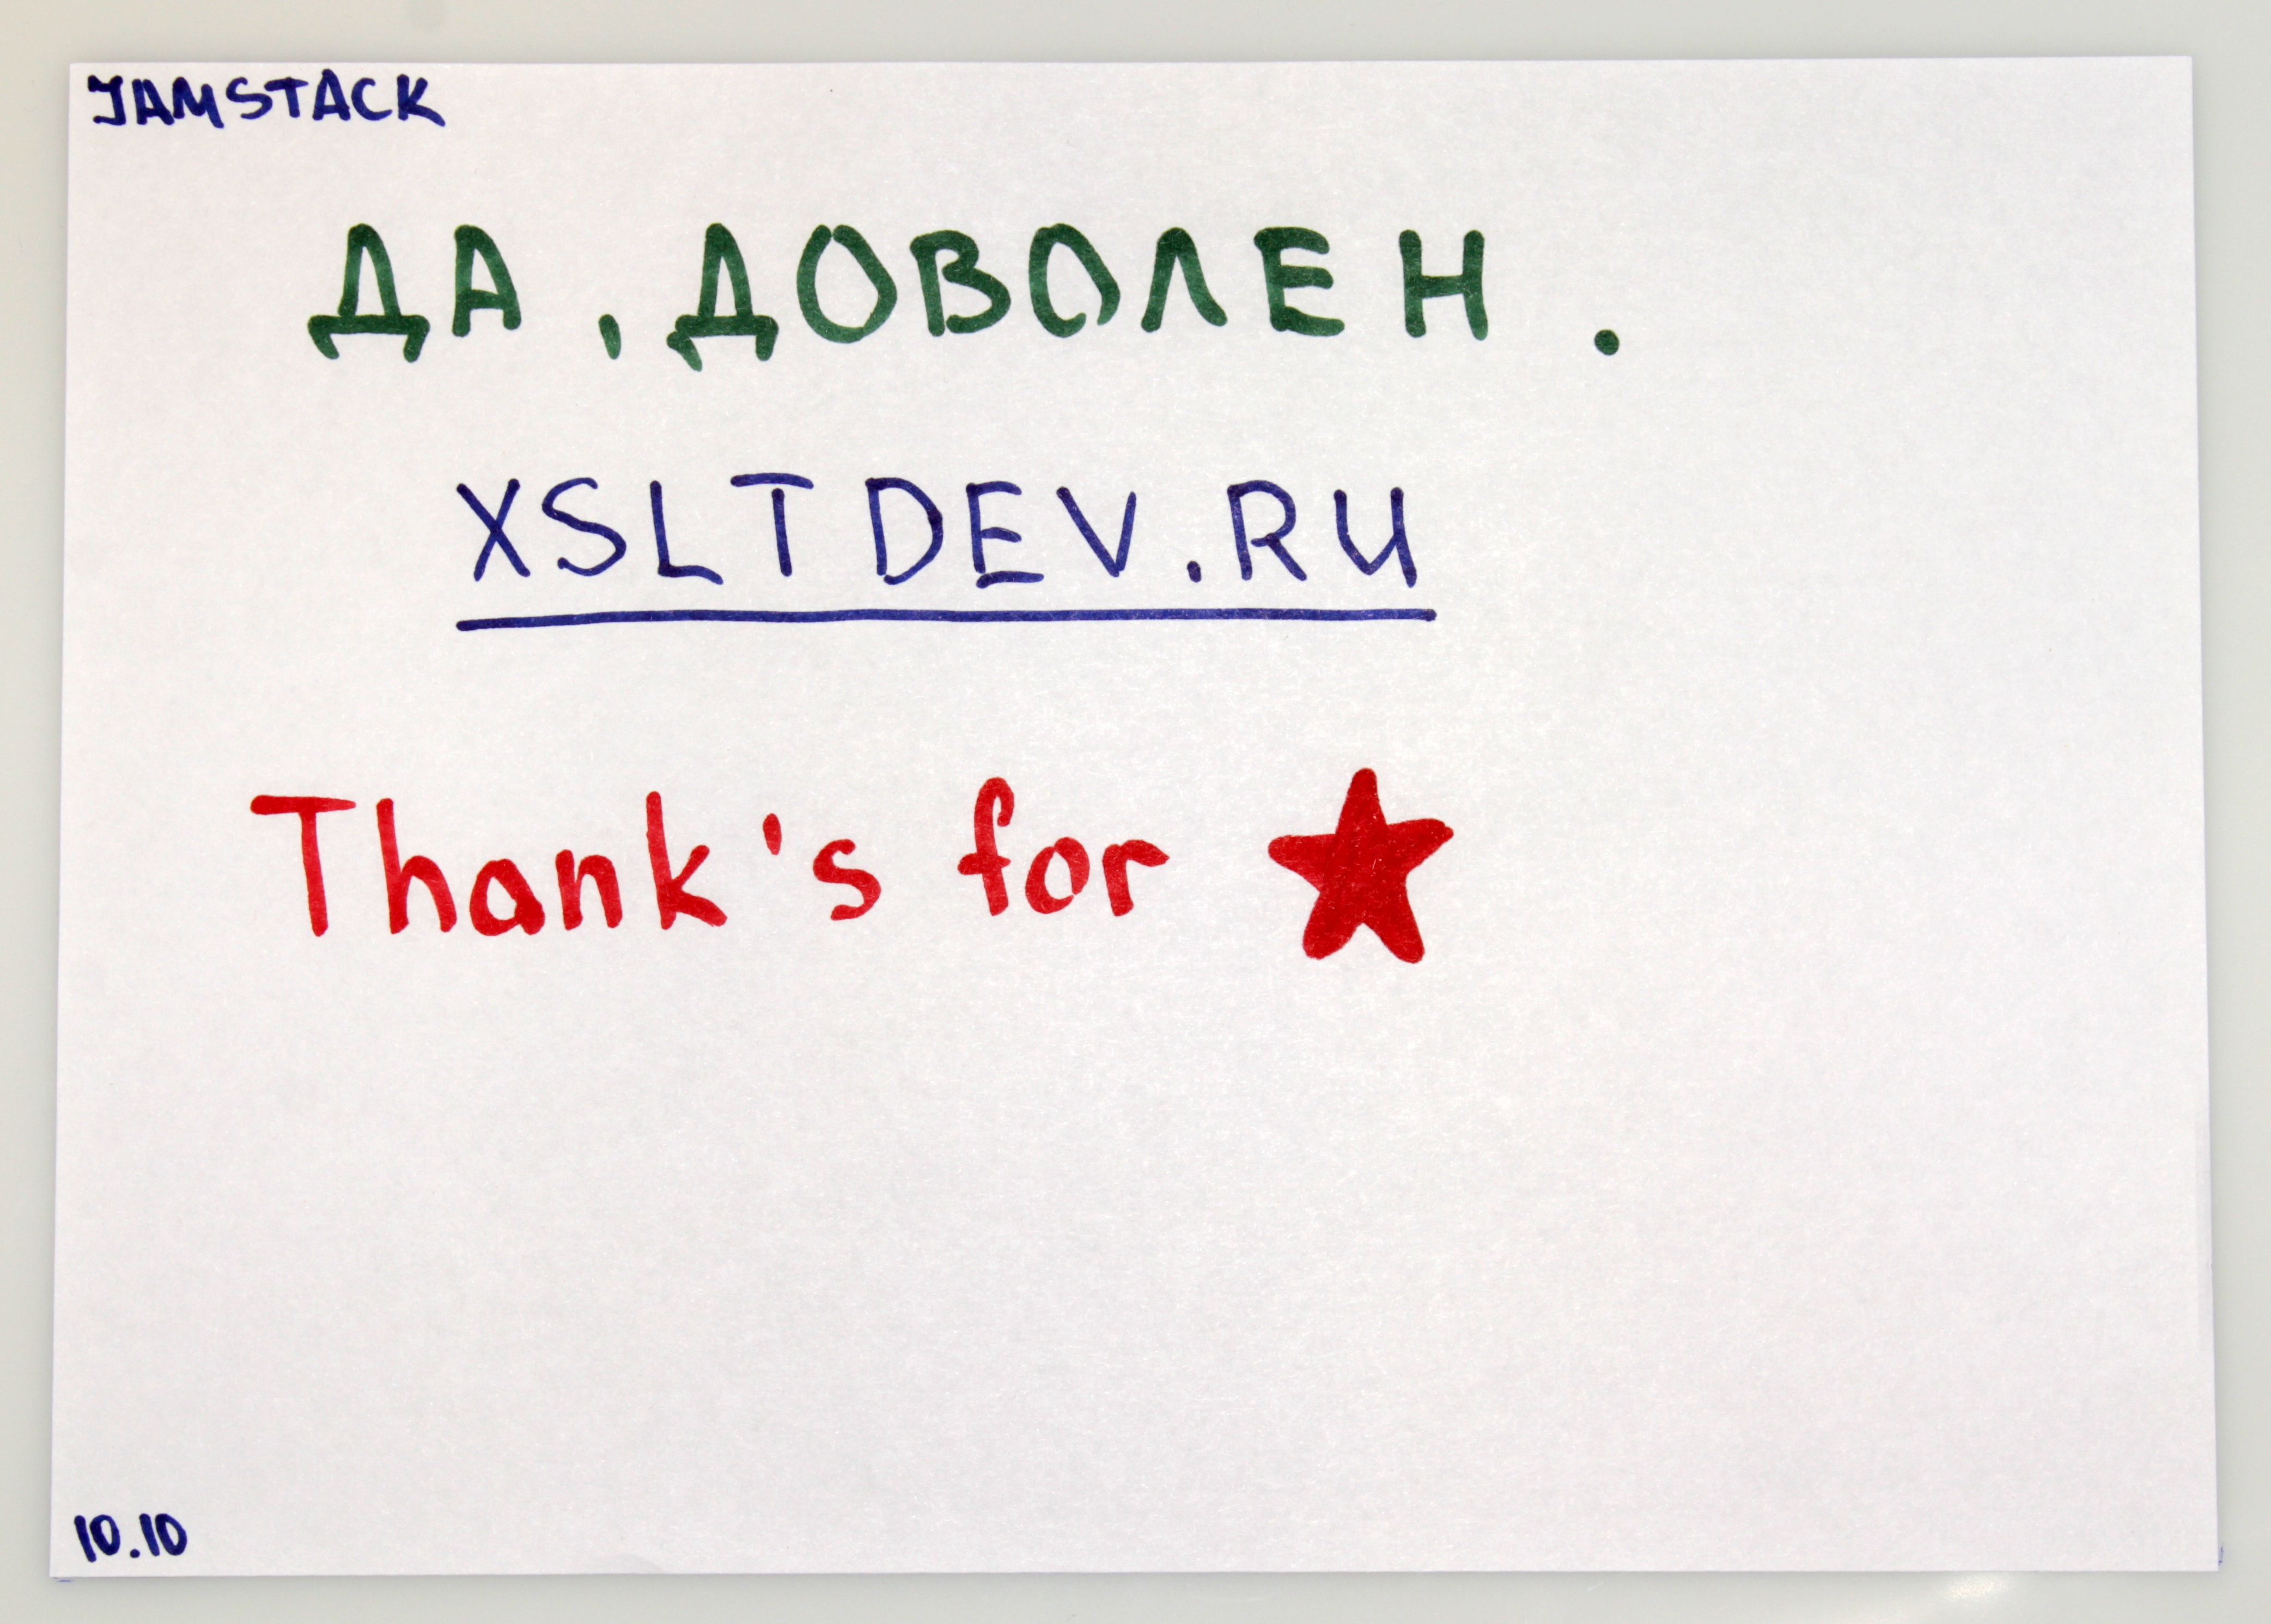 JAMSTACK
ДА, ДОВОЛЕН.
XSLTDEV.RU
Thank's for
10.10